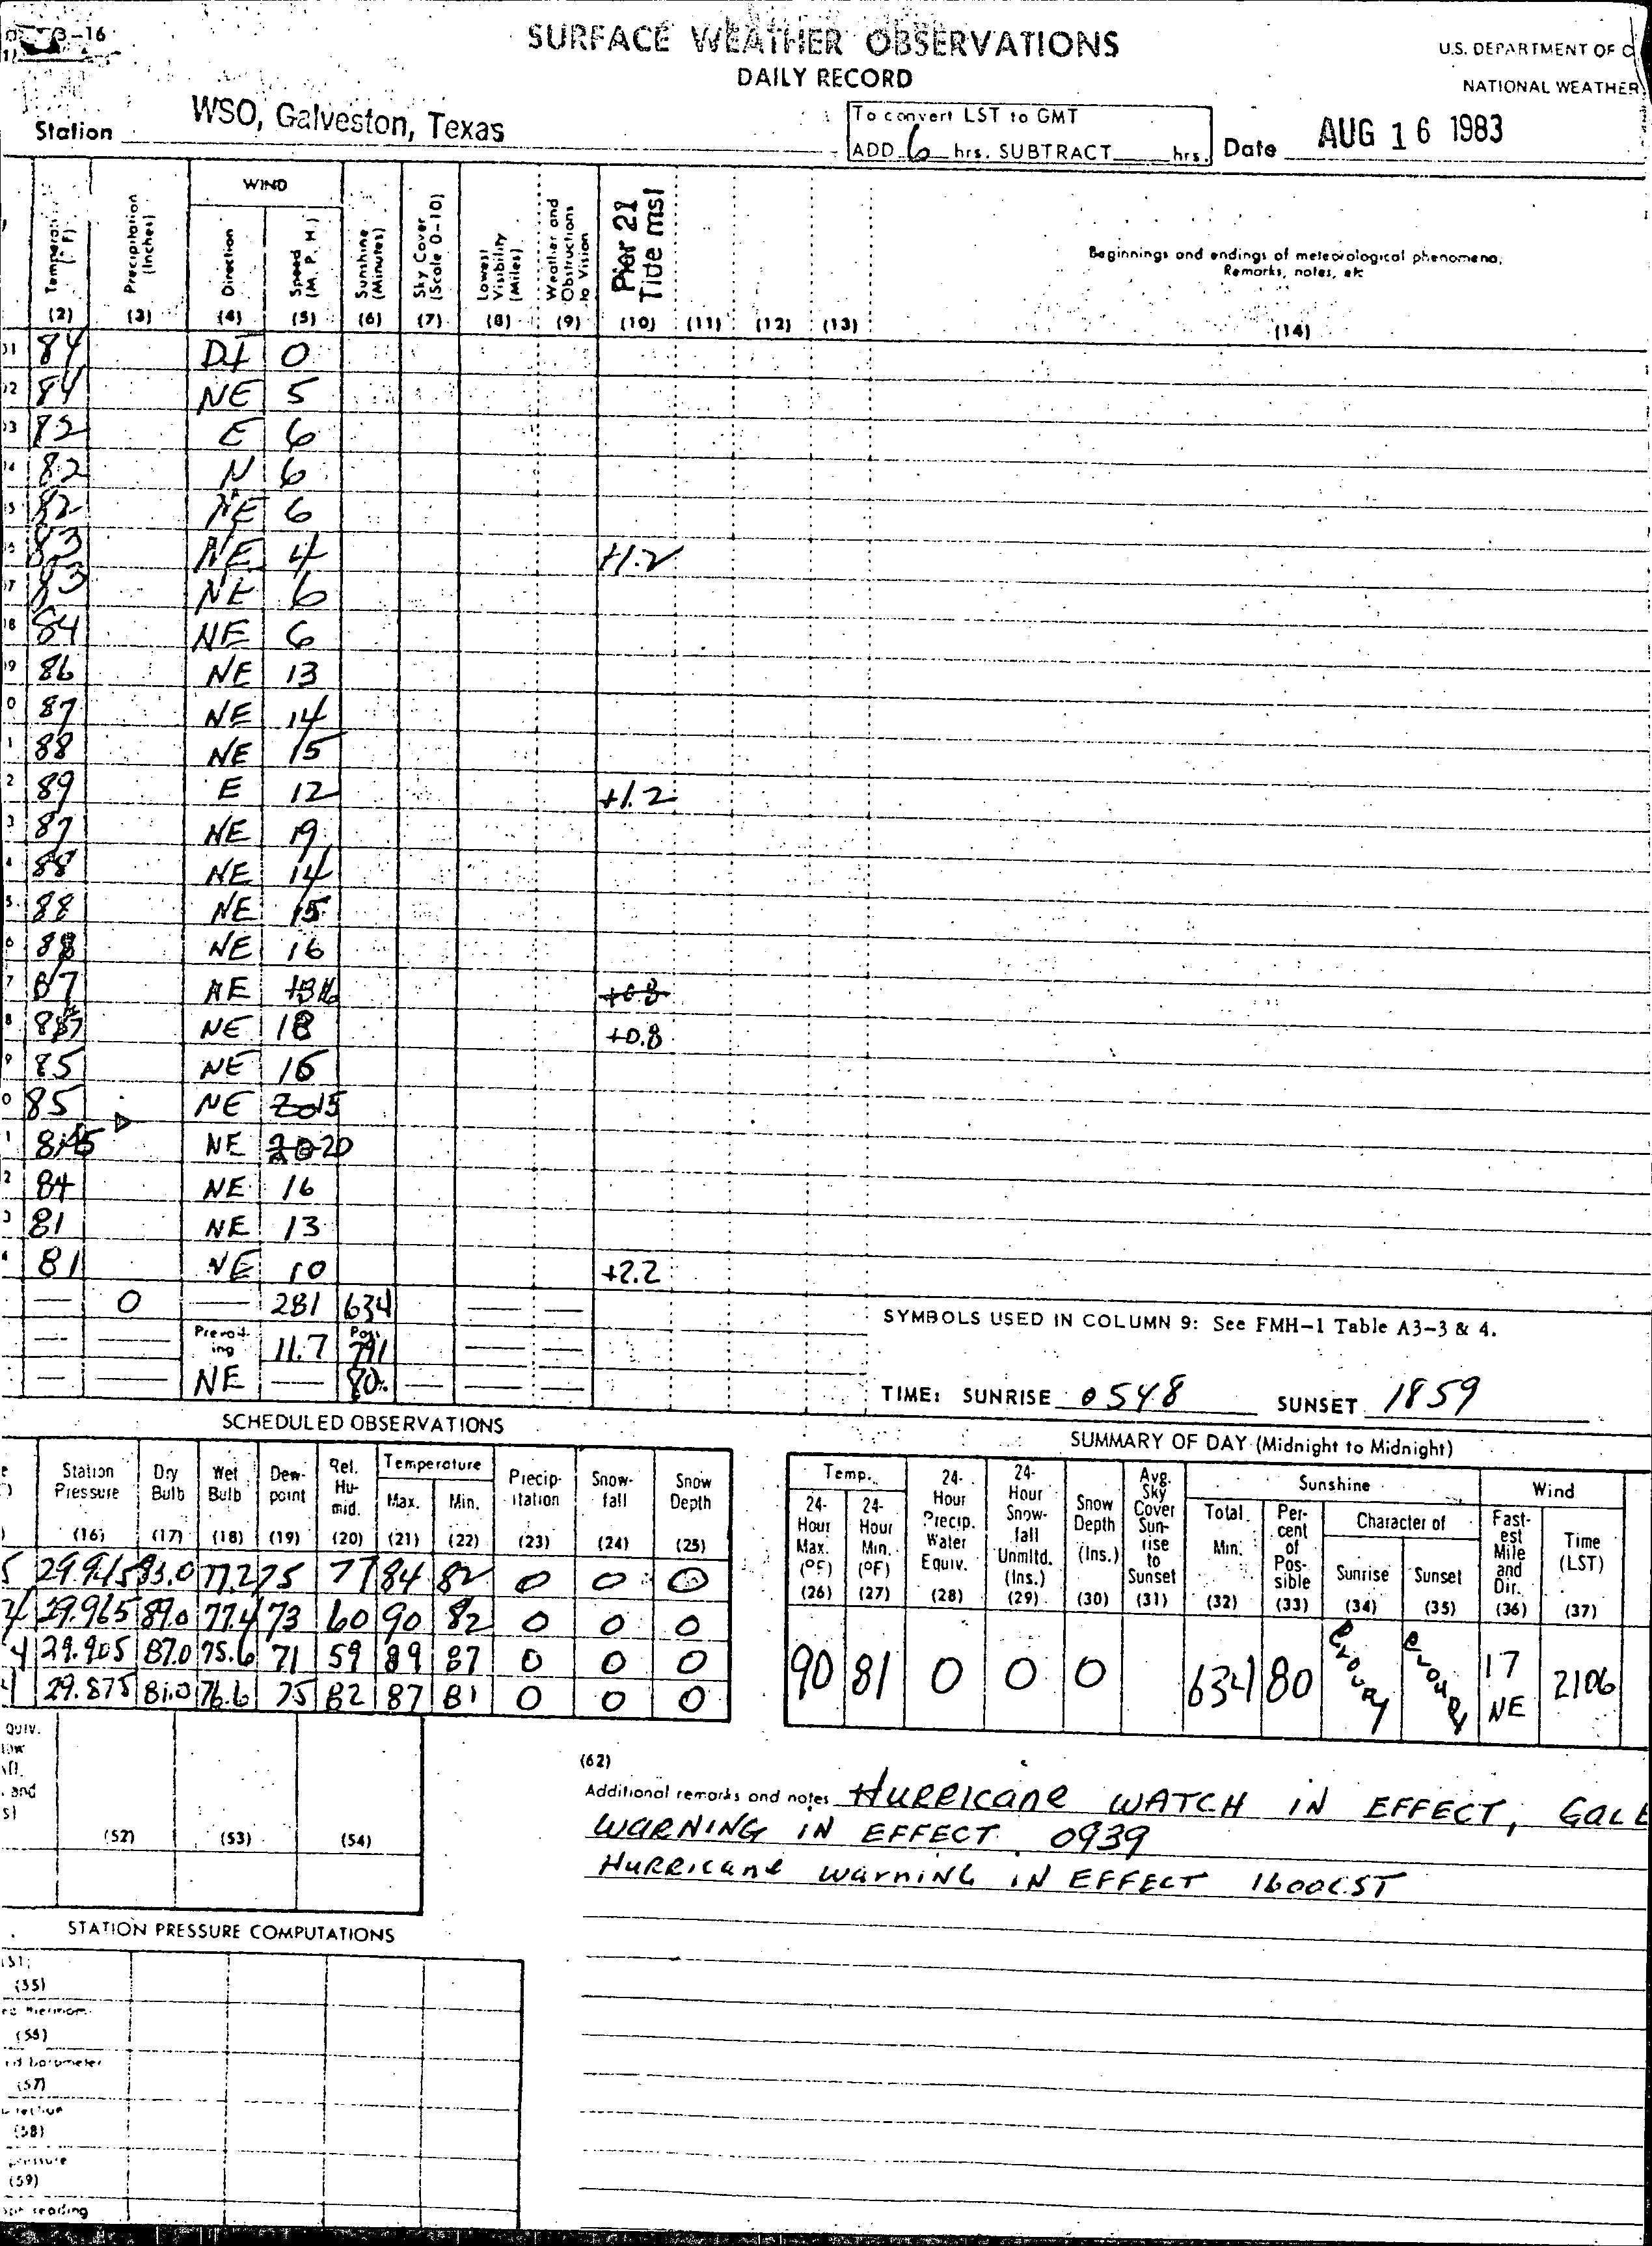 SURFACE WEATHER OBSERVATIONS
DAILY RECORD
U.S. DEPARTMENT OF C
NATIONAL WEATHER
Station WSO, Galveston, Texas
To convert LST to GMT
ADD 6 hrs. SUBTRACT hrs.
Date AUG 16 1983
WIND
Precipitation (Inches) Direction Speed (M. P. H.) Sunshine (Minutes) Sky Cover (Scale 0-10) Lowest Visibility (Miles) Weather and Obstructions to Vision Pier 21 Tide msl
Beginnings and endings of meteorological phenomena,
Remarks, notes, etc
(2) (3) (4) (5) (6) (7) (8) (9) (10) (11) (12) (13) (14)
84 0
84 NE 5
82 E 6
82 N 6
82 NE 6
83 NE 4 +1.2
83 NE 6
84 NE 6
86 NE 13
87 NE 14
88 NE 15
89 E 12 +1.2
87 NE 19
88 NE 14
88 NE 15
88 NE 16
87 NE 16 +0.8
NE 18 +0.8
85 NE 16
85 NE 15
NE 20
84 NE 16
81 NE 13
81 NE 10 +2.2
0 281 634
Prevailing 11.7 Poss 791
NE 80
SYMBOLS USED IN COLUMN 9: See FMH-1 Table A3-3 & 4.
TIME: SUNRISE 0548 SUNSET 1859
SCHEDULED OBSERVATIONS
Station Pressure Dry Bulb Wet Bulb Dewpoint Rel. Humid. Temperature Max. Min. Precipitation Snowfall Snow Depth
(16) (17) (18) (19) (20) (21) (22) (23) (24) (25)
29.915 83.0 77.2 75 77 84 82 0 0 0
29.965 89.0 77.4 73 60 90 82 0 0 0
29.905 87.0 75.6 71 59 89 87 0 0 0
29.875 81.0 76.6 75 82 87 81 0 0 0
SUMMARY OF DAY (Midnight to Midnight)
Temp. Sunshine Wind
24-Hour Max. (°F) 24-Hour Min. (°F) 24-Hour Precip. Water Equiv. 24-Hour Snowfall Unmltd. (Ins.) Snow Depth (Ins.) Avg. Sky Cover Sunrise to Sunset Total Min. Percent of Possible Character of Sunrise Sunset Fastest Mile and Dir. Time (LST)
(26) (27) (28) (29) (30) (31) (32) (33) (34) (35) (36) (37)
90 81 0 0 0 634 80 CLOUDY CLOUDY 17 NE 2106
(52) (53) (54)
(62)
Additional remarks and notes HURRICANE WATCH IN EFFECT, GALE
WARNING IN EFFECT 0939
HURRICANE WARNING IN EFFECT 1600CST
STATION PRESSURE COMPUTATIONS
(55)
(57)
(58)
pressure
(59)
reading